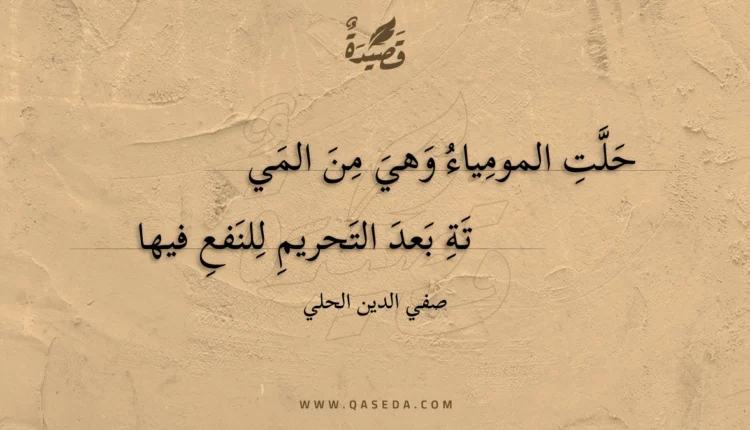 قَصِيدَةٌ
حَلَّتِ المومِياءُ وَهيَ مِنَ المَي
تَةِ بَعدَ التَحريمِ لِلنَفعِ فيها
صفي الدين الحلي
WWW.QASEDA.COM